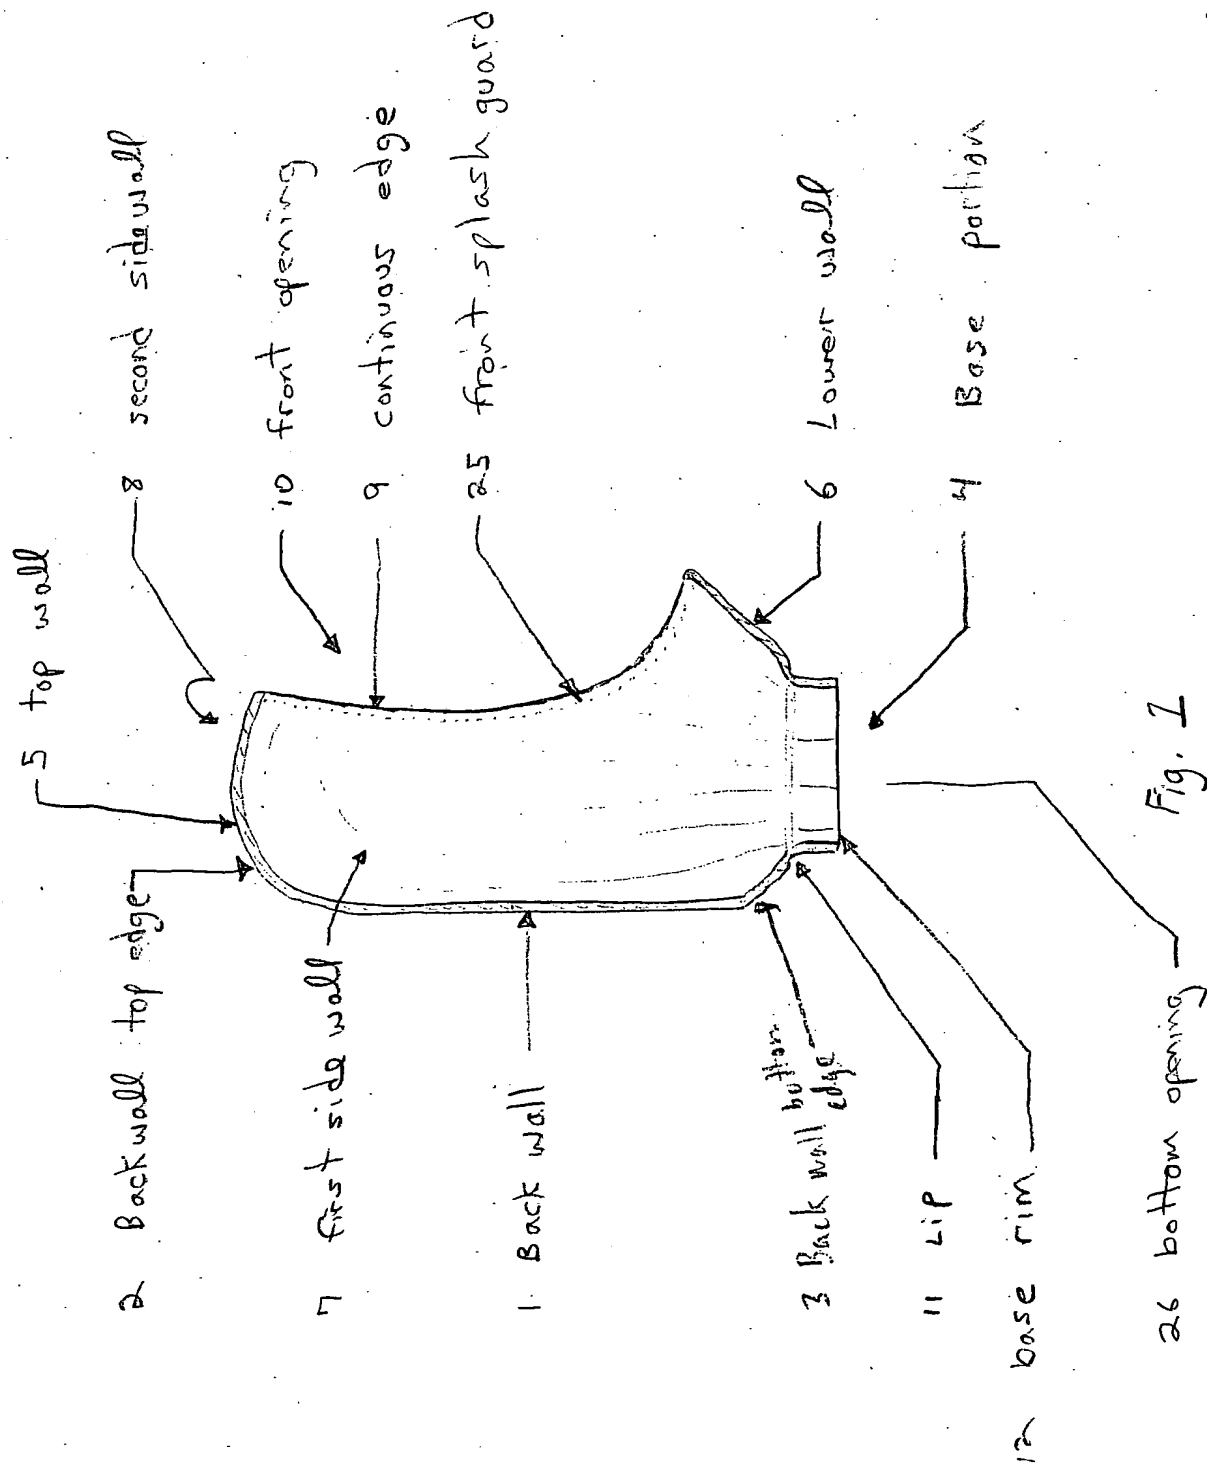 5 top wall
8 second sidewall
10 front opening
9 continuous edge
25 front splash guard
6 Lower wall
4 Base portion
2 Backwall top edge
7 first side wall
1 Back wall
3 Back wall bottom
edge
11 Lip
12 base rim
26 bottom opening
Fig. 1